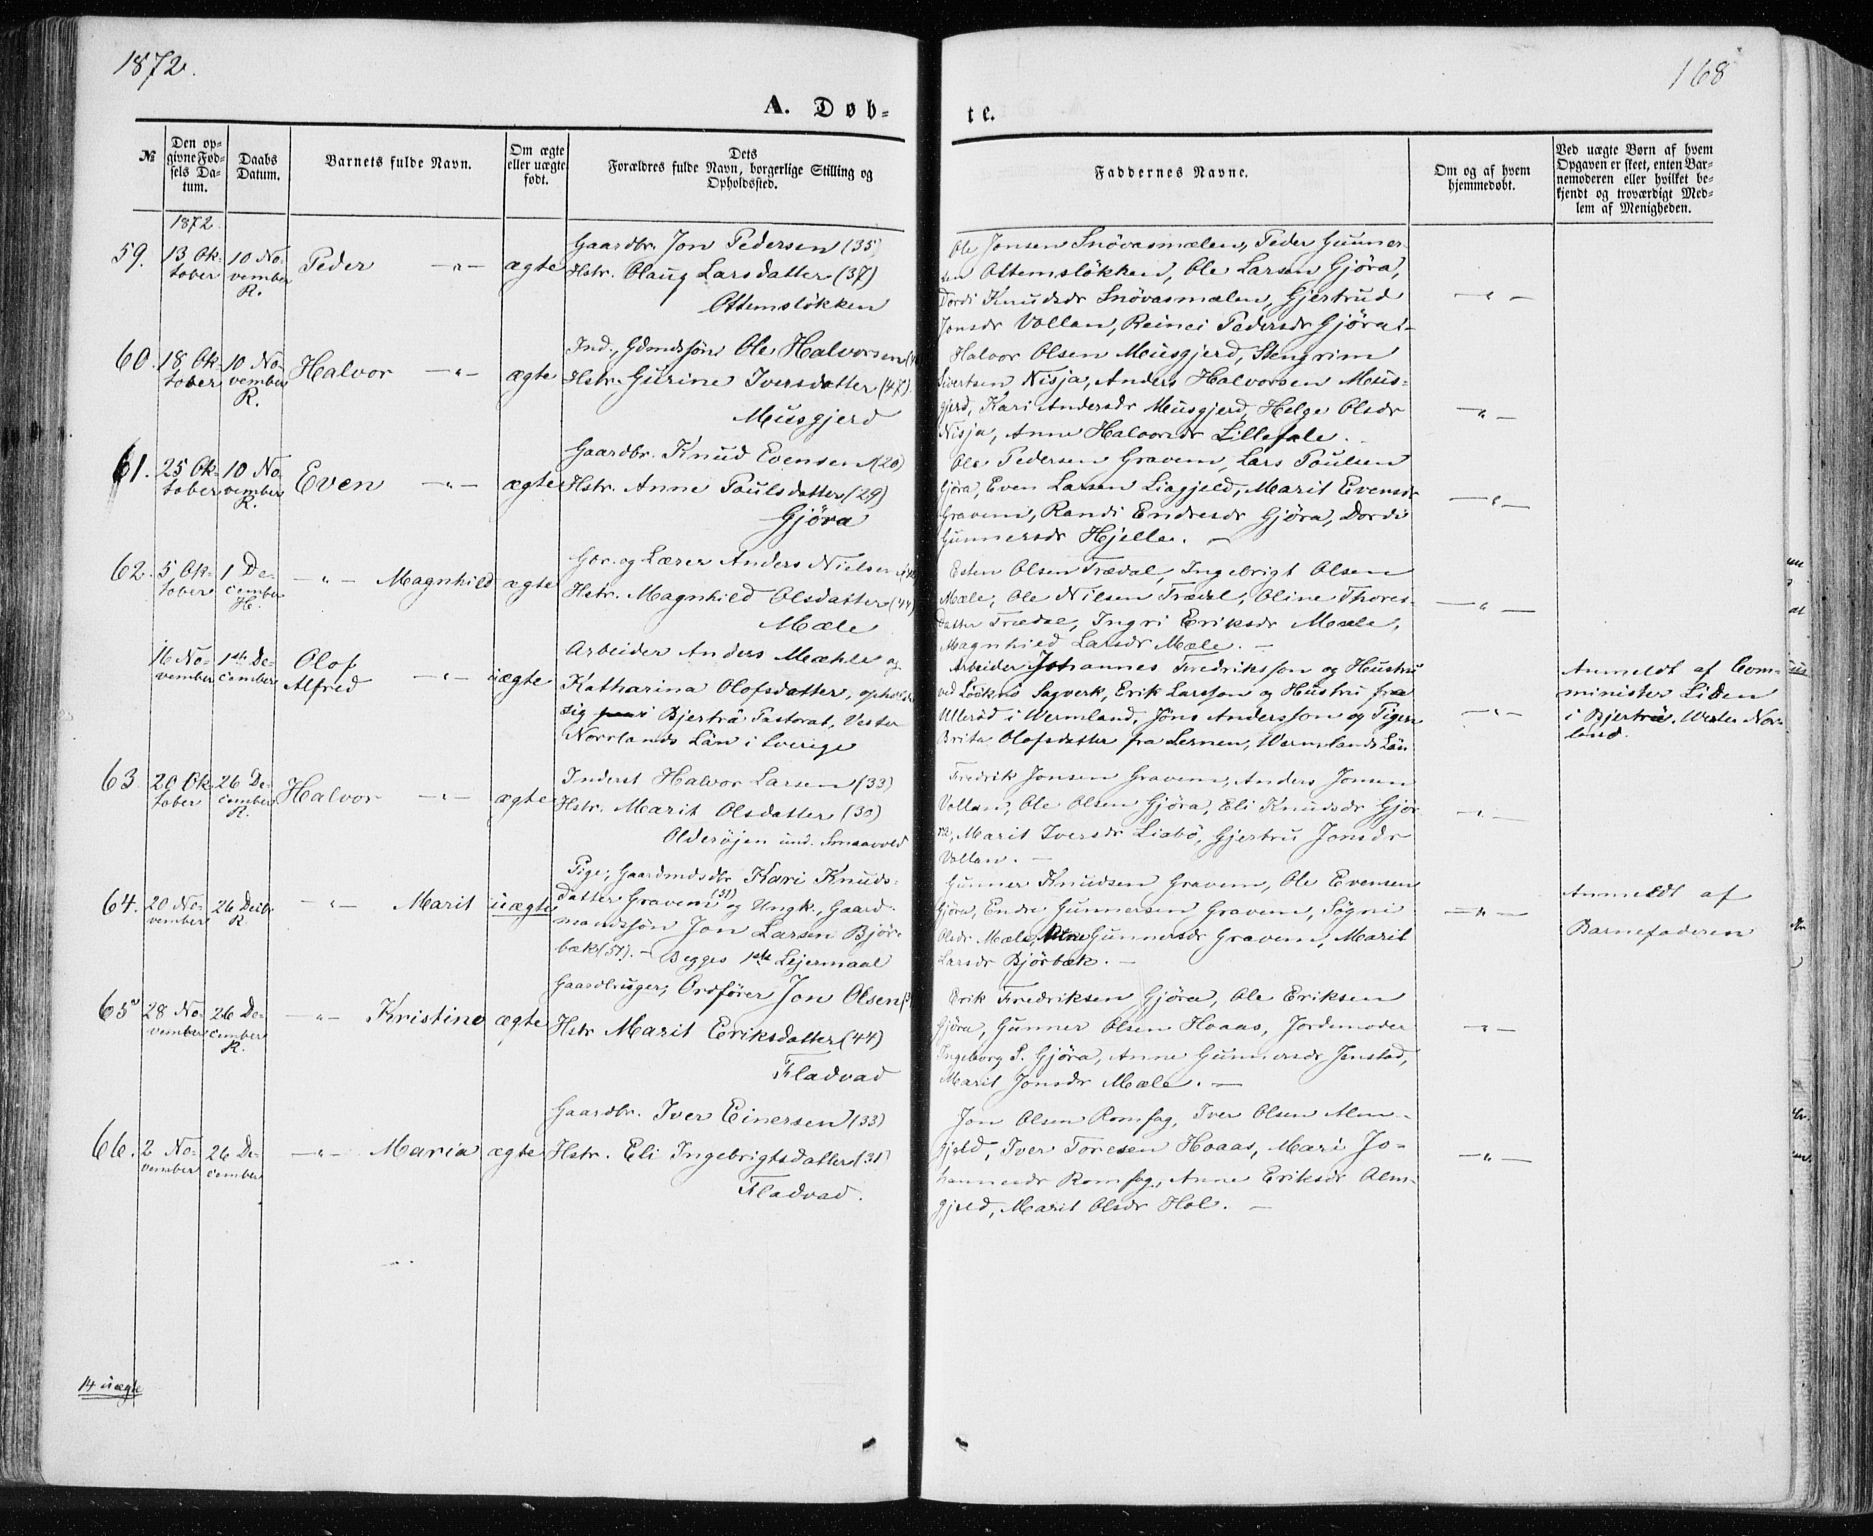 1872.
168
A. Døb-
te.
№
Den op-
givne Fød-
sels Da-
tum.
Daabs
Datum.
Barnets fulde Navn.
Om ægte
eller uægte
født.
Dets
Forældres fulde Navn, borgerlige Stilling og
Opholdssted.
Faddernes Navne.
Om og af hvem
hjemmedøbt.
Ved uægte Børn af hvem
Opgaven er skeet, enten Bar-
nemoderen eller hvilket be-
kjendt og troværdigt Med-
lem af Menigheden.
1872.
59.
13 Ok-
tober
10 No-
vember
R.
Peder —"—
ægte
Gaardbr. Jon Pedersen (35)
Hstr. Olaug Larsdatter (37)
Ottemsløkken
Ole Jonsen Snövasmælen, Peder Gunner-
sen Ottemsløkken, Ole Larsen Gjöra,
Dordi Knudsdr Snövasmælen, Gjertrud
Jonsdr Vollan, Reinei Pedersdr Gjöra.—
—"—
60.
18 Ok-
tober
10 No-
vember
R.
Halvor —"—
ægte
Ind., Gdmdssön Ole Halvorsen
Hstr. Gurine Iversdatter (47)
Musgjerd
Halvor Olsen Musgjerd, Stengrim
Sivertsen Nisja, Anders Halvorsen Mus-
gjerd, Kari Andersdr Musgjerd, Helge Olsdr
Nisja, Anne Halvorsdr Lillefale.
—"—
61.
25 Ok-
tober
10 No-
vember
R.
Even —"—
ægte
Gaardbr. Knud Evensen (20)
Hstr. Anne Poulsdatter (29)
Gjöra
Ole Pedersen Gravem, Lars Poulsen
Gjöra, Even Larsen Liagjeld, Marit Evensdr
Gravem, Randi Endresdr Gjöra, Dordi
Gunnersdr Hjelle. —
—"—
62.
5 Ok-
tober
1 De-
cember
H.
—"— Magnhild
ægte
Gbr. og Lærer Anders Nielsen
Hstr. Magnhild Olsdatter (44)
Mæle
Esten Olsen Trædal, Ingebrigt Olsen
Mæle, Ole Nilsen Trædal, Oline Thores-
datter Trædal, Ingri Eriksdr Mæle,
Magnhild Larsdr Mæle. —
—"—
16 No-
vember
1ste De-
cember
Olof
Alfred —"—
uægte
Arbeider Anders Mæhle og
Katharina Olofsdatter, opholder
sig i Bjertrå Pastorat, Vester
Norrlands Län i Sverige
Arbeider Johannes Fredriksson og Hustru
ved Löökns Sagverk, Erik Larsson og Hustru fra
Ulleröd i Wermland, Jöns Andersson og Pigen
Brita Olofsdatter fra Lernen, Wermlands Län
—"—
Anmeldt af Com-
minister Liden
i Bjertrå, Wester Nor-
land.
63.
20 Ok-
tober
26 De-
cember
R.
Halvor —"—
ægte
Inderst Halvor Larsen (33)
Hstr. Marit Olsdatter (30)
Olderöjen und. Smaavold
Fredrik Jonsen Gravem, Anders Jonsen
Vollan, Ole Olsen Gjöra, Eli Knudsdr Gjö-
ra, Marit Iversdr Liabö, Gjertru Jonsdr
Vollan. —
—"—
64.
20 No-
vember
26 Decbr
R.
—"— Marit
uægte
Pige, Gaardmdsdtr Kari Knuds-
datter Gravem (31) og Ungk., Gaard-
mandssön Jon Larsen Björ-
bæk (31). — Begges 1ste Lejermaal
Gunner Knudsen Gravem, Ole Evensen
Gjöra, Endre Gunnersen Gravem, Sögni
Olsdr Mæle, Gunnersdr Gravem, Marit
Larsdr Bjørbæk. —
—"—
Anmeldt af
Barnefaderen
65
28 No-
vember
26 De-
cember
R.
—"— Kristine
ægte
Gaardbruger, Ordfører Jon Olsen
Hstr Marit Eriksdatter (44)
Fladvad
Erik Fredriksen Gjöra, Ole Eriksen
Gjöra, Gunner Olsen Hoaas, Jordemoder
Ingeborg P. Gjöra, Anne Gunnersdr Jenstad,
Marit Jonsdr Mæle. —
—"—
66.
2 No-
vember
26 De-
cember
—"— Maria
ægte
Gaardbr. Iver Einersen (33)
Hstr. Eli Ingebrigtsdatter (31)
Fladvad.
Jon Olsen Romfog, Iver Olsen Alm-
gjeld, Iver Toresen Hoaas, Mari Jo-
hannesdr Romfog, Anne Eriksdr Alm-
gjeld, Marit Olsdr Hol. —
—"—
14 uægte